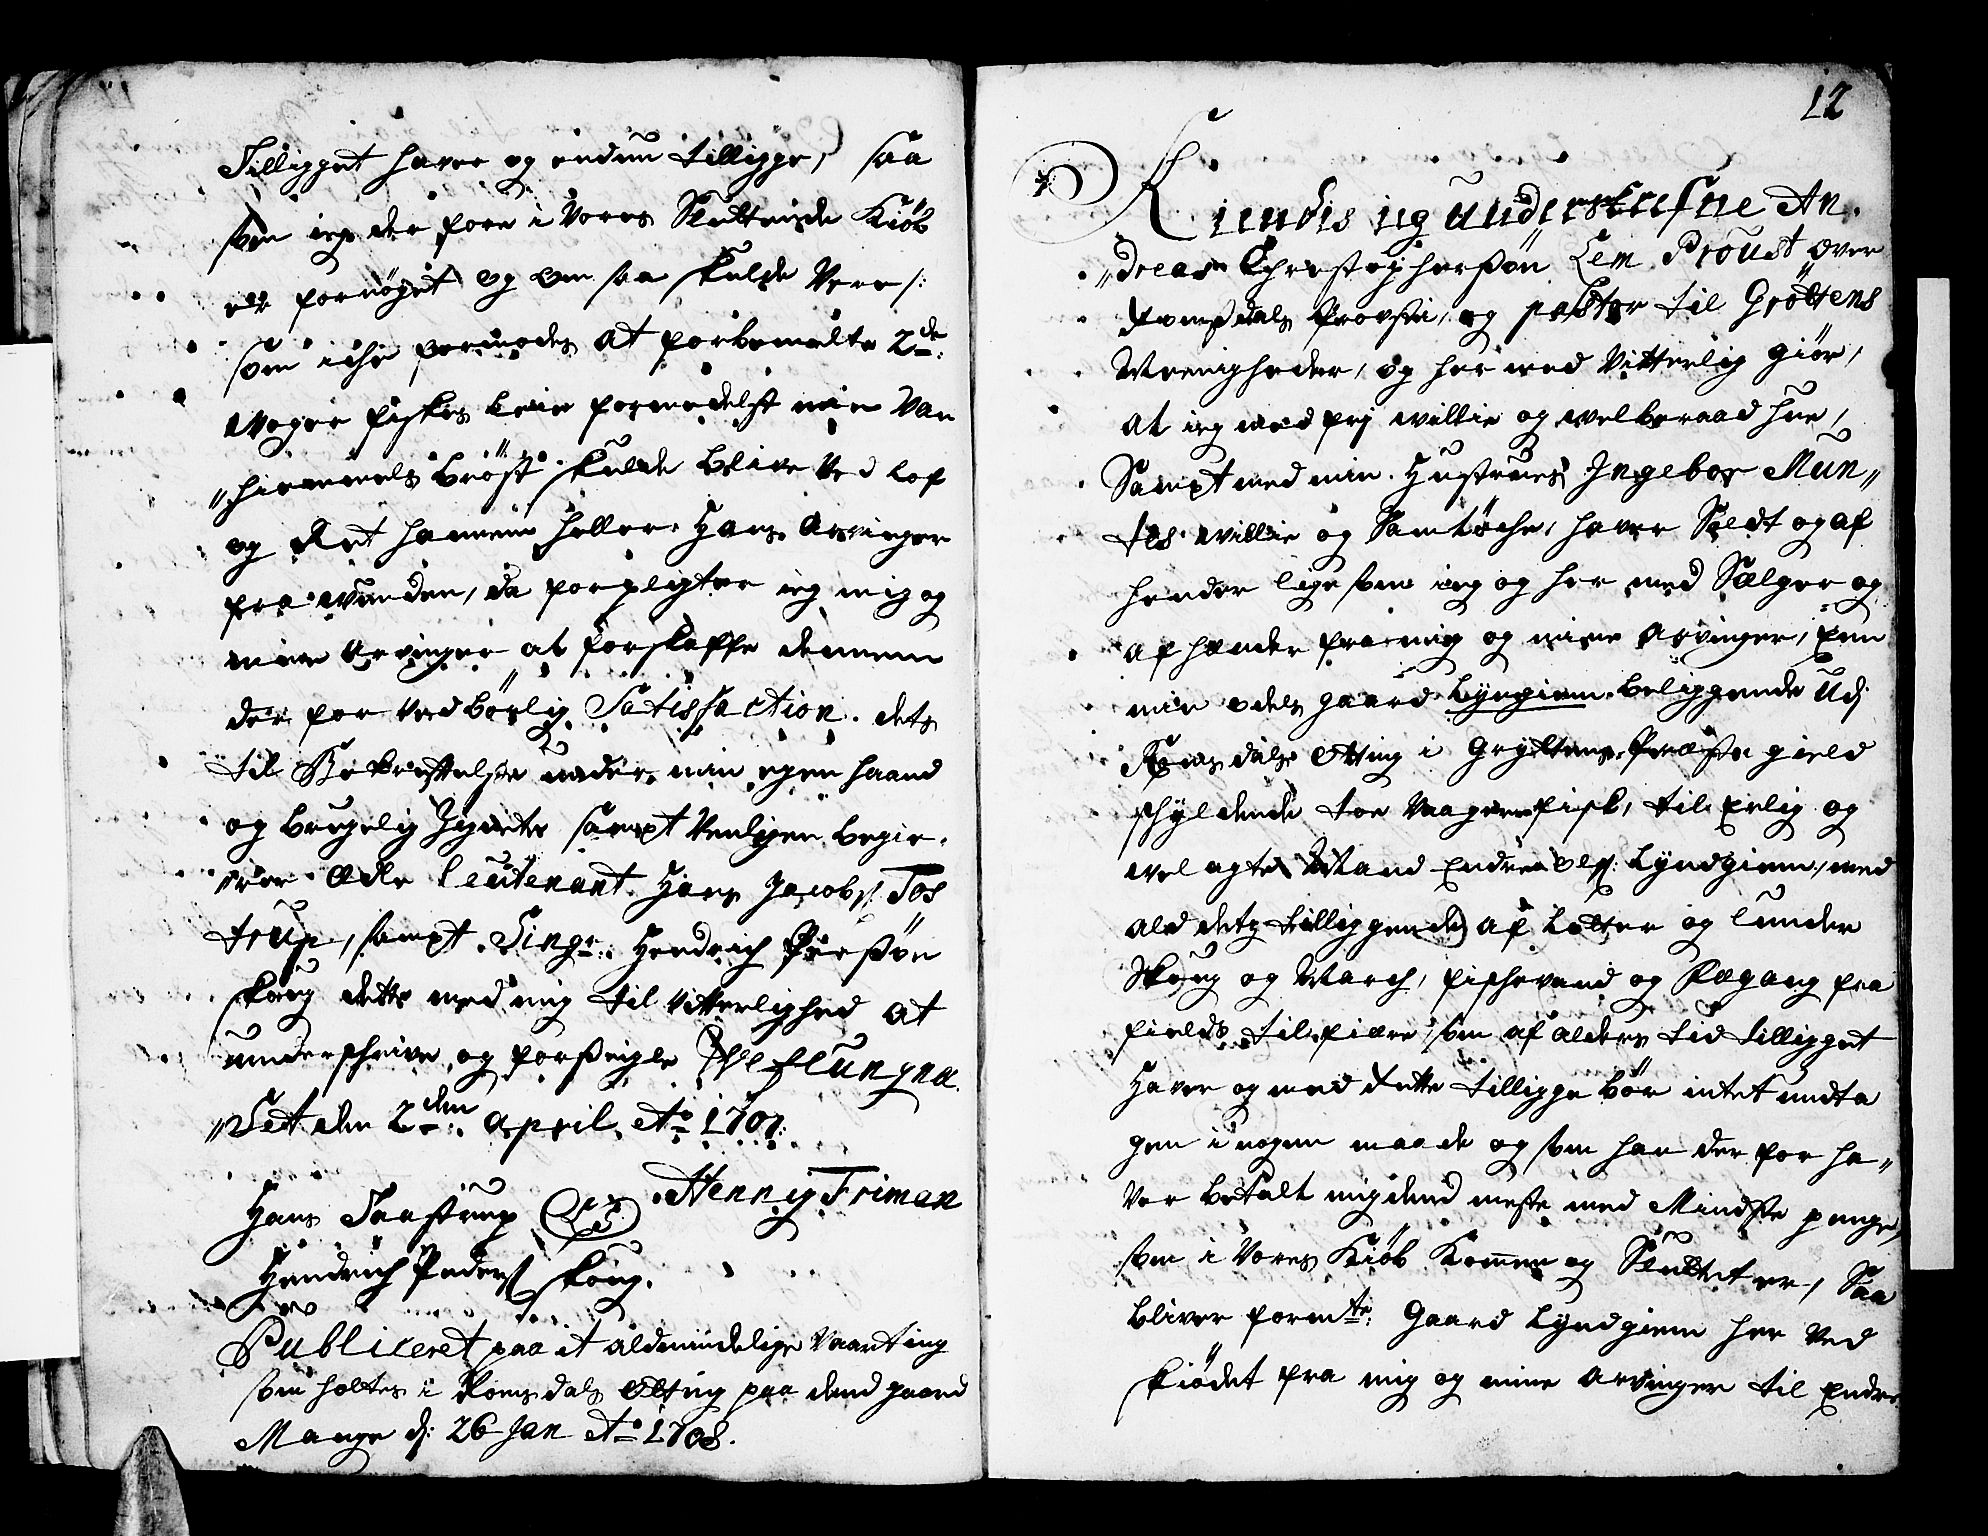 Tilligget haver og endnu tilligge, saa
som ieg der fore i Vores Sluttende Kiöb
er fornöyet og om saa skulde Vere /:
som iche formodes at forbemelte 2de:
Woger fiskes leie formedelst min Van
„hiemmels bröst skulde blive Ved Lof
og Ret hannem heller Hans Arvinger
fra wunden, da forpligter ieg mig og
mine Arvinger at forskaffe dennem
der for Vedbörlig Satisfaction. dets
til Bekreftelse under min egen haand
og brugelig Zignete sampt Venligen begie-
rer Edle Leutenant Hans Jacobs: Tos
trup, sampt Singr: Hendrich Peersön
Koug dette med mig til Vitterlighed at
underschrive og forseigle Ahctlungna
„Set den 2den April Ao 1707
Hennig Friman
Hans Taastrup
Hendrich Peders Koug.
Publiceret paa it aldmindelige Vaarting
som holtes i Romsdals Otting paa dend gaard
Mange d: 26 Jan Ao 1708.
12
Kiendis ieg underskrefne An-
„dreas Christopherssön Lem Proust over
Romsdals Provsti, og pastor til Gröttens
Menigheder, og her med Vitterlig giör,
at ieg med frj willie og welberaad hue,
Sampt med min Hustrues Ingebor Mun„
tes willie og Samtöche, haver Soldt og af
hender lige som ieg og her med Sælger og
afhænder fra mig og mine Arvinger, Een
min odels gaard Lyngiem beliggende Udj
Romsdals Otting i Gryttens Præste gield
schyldende toe Vaager fisk, til Erlig og
velagte Mand Endre Ols: Lyndgiem, med
ald dets tilliggende af Lotter og Lunder
Skoug og March, fischevand og Fægang fra
fields til fiære som af alders tid tilligget
Haver og med Rette tilligge bör intet undta
gen i nogen maade og som han der for ha„
Ver betalt mig dend meste med Mindste penge
som i Vores Kiöb Kommen og Sluttet er, Saa
bliver formte: Gaard Lyndgiem her Ved
skiödet fra mig og mine Arvinger til Endre